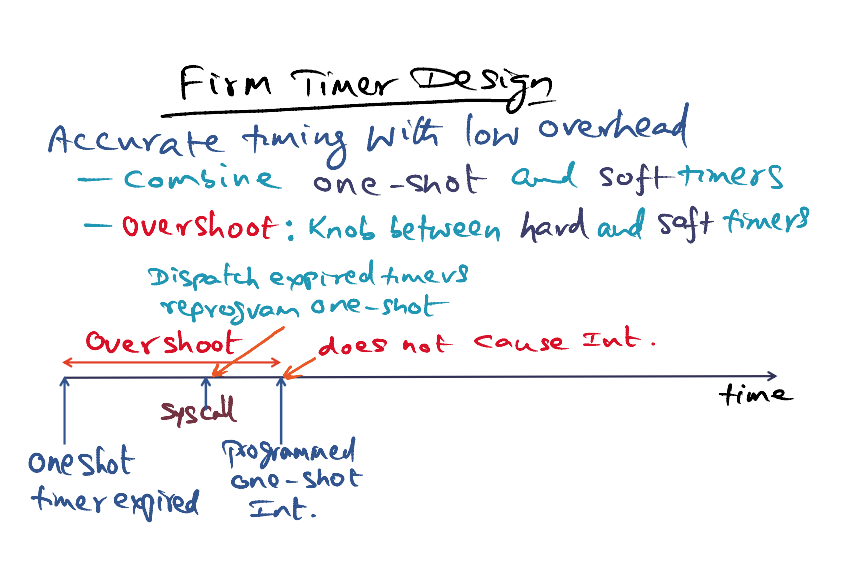 Firm Timer Design
Accurate timing with low overhead
- Combine one-shot and soft timers
- Overshoot: Knob between hard and soft timers
Dispatch expired timers
reprogram one-shot
Overshoot
does not cause Int.
time
Syscall
One shot
timer expired
Programmed
one-shot
Int.